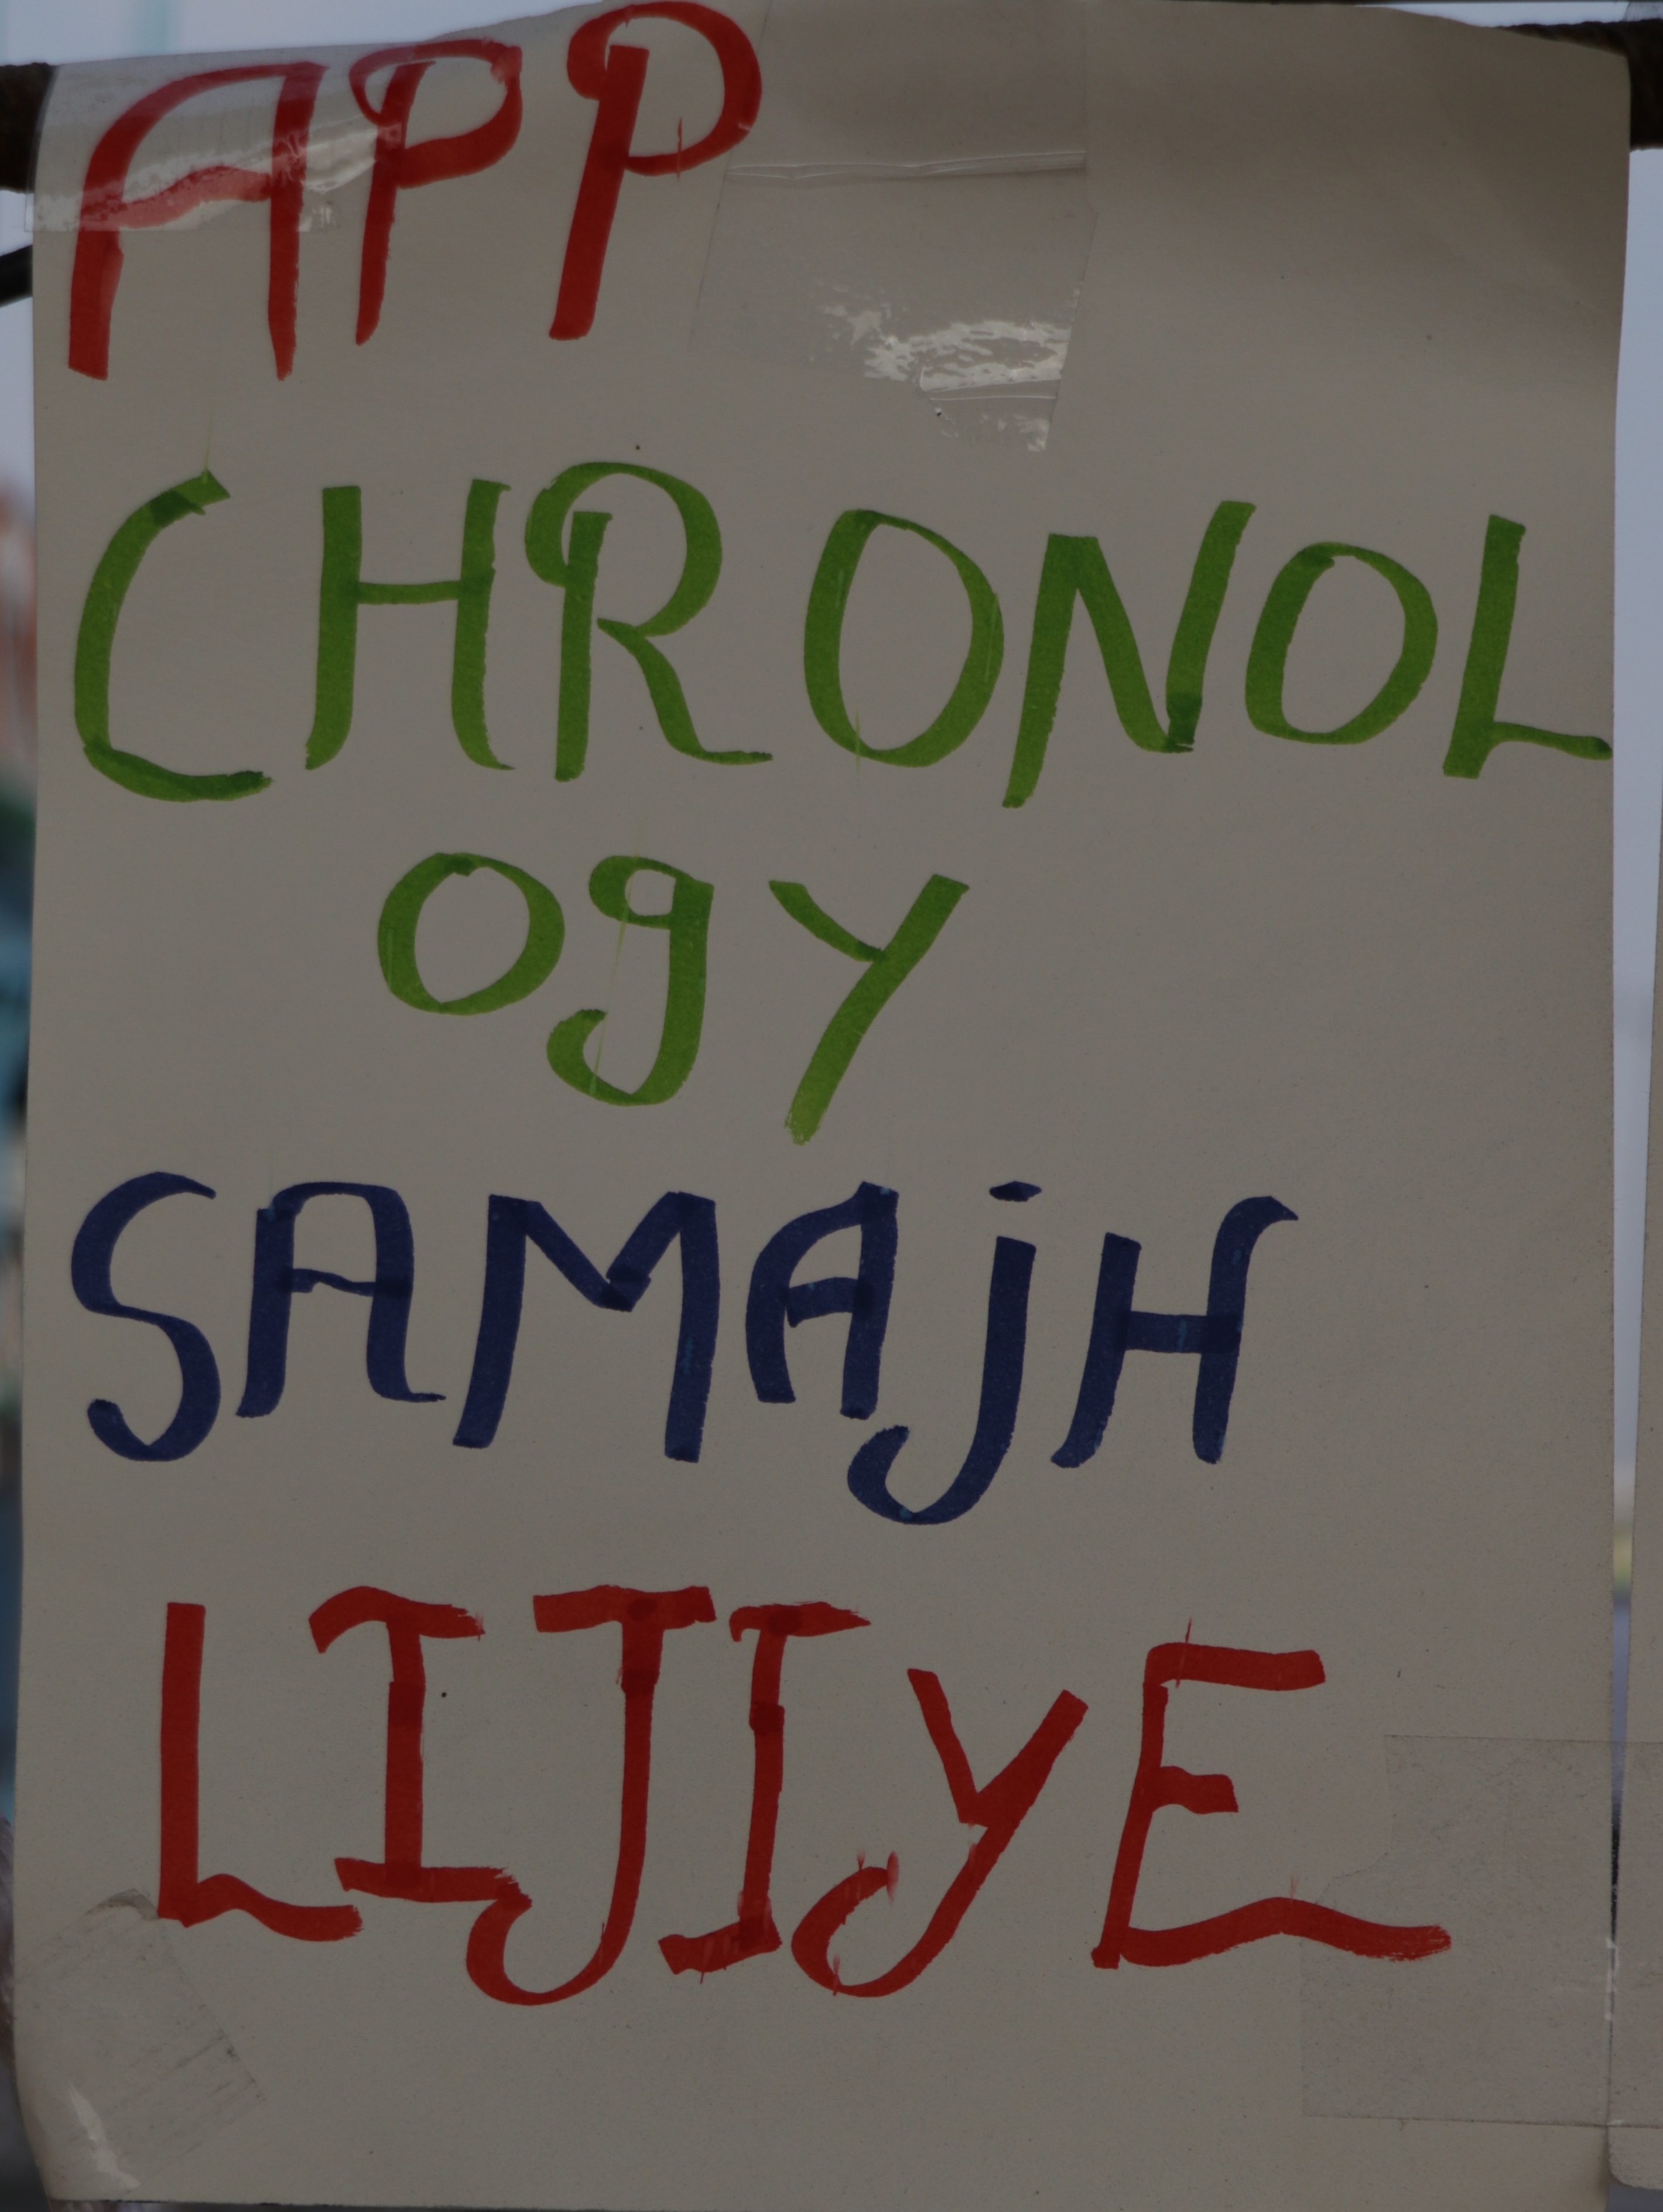 APP
CHRONOL
OgY
SAMAjH
LIJIyE